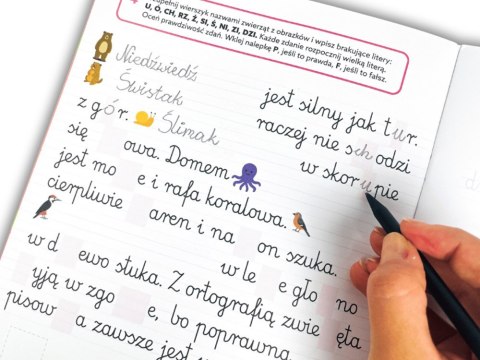 upełnij wierszyk nazwami zwierząt z obrazków i wpisz brakujące litery:
U, Ó, CH, RZ, Ż, SI, Ś, NI, ZI, DZI. Każde zdanie rozpocznij wielką literą.
Oceń prawdziwość zdań. Wklej nalepkę P, jeśli to prawda, F, jeśli to fałsz.
Niedźwiedź jest silny jak tur.
Świstak raczej nie schodzi
z gór. Ślimak w skorupie
się owa. Domem
jest mo e i rafa koralowa.
cierpliwie aren i na on szuka.
w d ewo stuka. w le e gło no
yją w zgo e, Z ortografią zwie ęta
pisow a zawsze jest bo poprawna